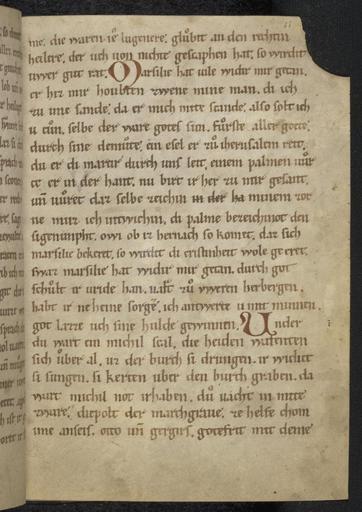 me. die waren ie lugenere. glŏbit an den rehtin
heilere. der uch uon nichte gescaphen hat. so wirdit
uwer gut rat. Marsilie hat uile widir mir getan.
er hiz mir houbten zwene mine man. di ich
zu ime sande. da er mich mite scande. also solt ich
u tůn. selbe der ware gotes sun. fůrste aller gote.
durch sine demůte. ein esel er zů iherusalem reit.
du er di martir durch uns leit. einen palmen
er in der hant. nu birt ir her zu mir gesant.
uñ uůret daz selbe zeichin in der ha minem zor
ne mite ich intwichin. di palme bezeichinot den
sigenunpht. owi ob iz hernach so komet. daz sich
marsilie bekeret. so wirdit di cristinheit wole geeret.
swaz marsilie hat widir mir getan. durch got
schůlt ir uride han. zů uweren herbergen.
habt ir neheine sorge. ich antwerte u mit minnen.
got lazze uch sine hulde gewinnen. Under
du wart ein michil scal. die heiden wafinten
sich uber al. uz der burch si drungen. ir wichliet
si sungen. si kerten uber den burch graben. da
wart michil not irhaben. dů uacht in mitte
ware. diepolt der marchgraue. ze helfe chom
ime anseis. otto uñ gergers. gotefrit mit deme